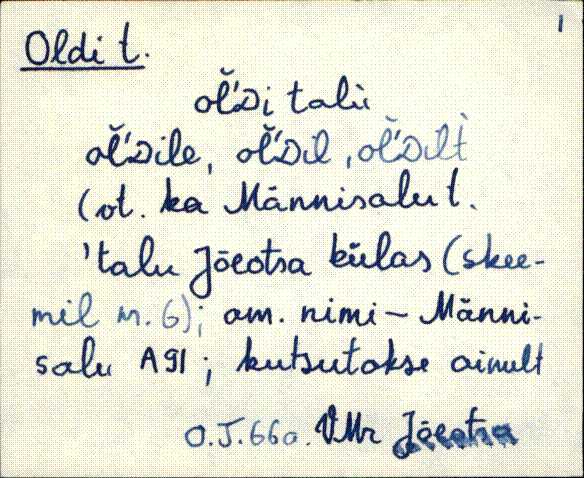 1
Oldi t.
oľ̆Di talù
oľ̆Dile, oľ̆Dil, oľ̆Dilt̀
(vt. ka Männisalu t.
'talu Jõeotsa külas (skee-
mil nr. 6); am. nimi – Männi-
salu A91; kutsutakse ainult
O.J. 66a. VMr Jõeotsa